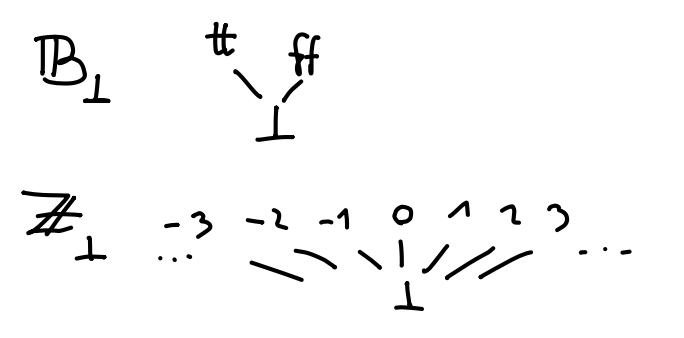 𝔹⊥ tt ff
⊥
ℤ⊥ -3 -2 -1 0 1 2 3
... ...
⊥